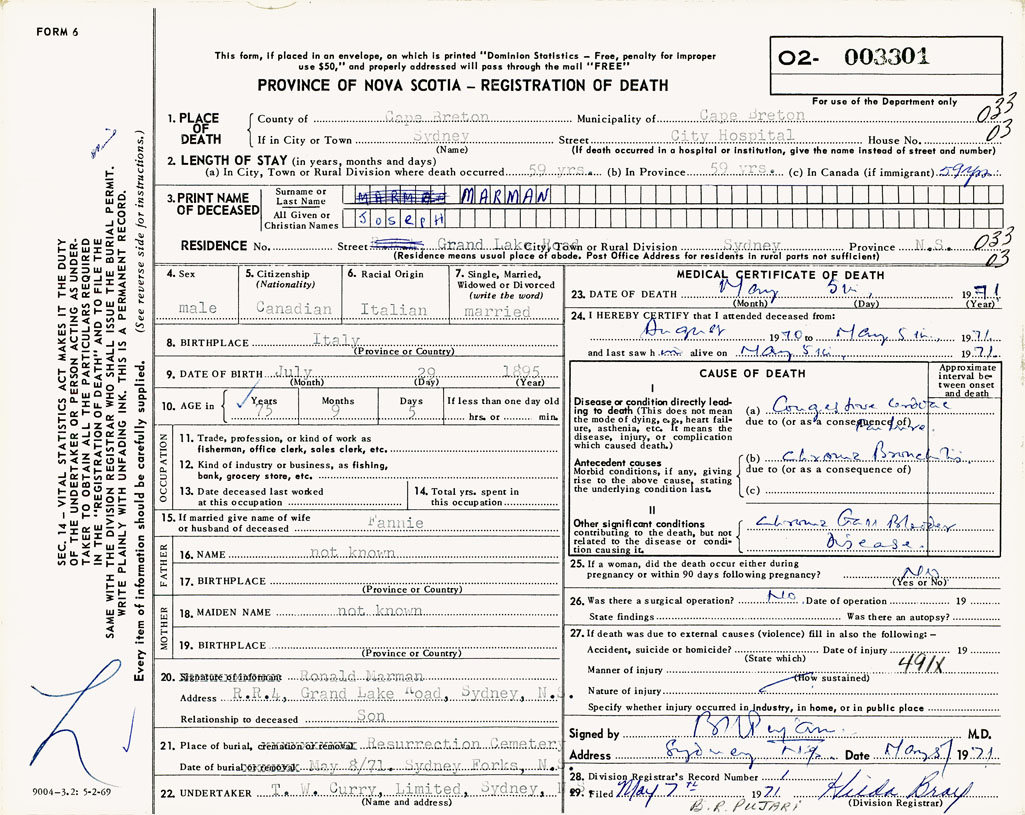 FORM 6
This form, if placed in an envelope, on which is printed "Dominion Statistics – Free, penalty for improper
use $50," and properly addressed will pass through the mail "FREE"
02- 003301
PROVINCE OF NOVA SCOTIA – REGISTRATION OF DEATH
For use of the Department only
033
03
1. PLACE OF DEATH
County of Cape Breton Municipality of Cape Breton
If in City or Town Sydney Street City Hospital House No.
(Name) (If death occurred in a hospital or institution, give the name instead of street and number)
2. LENGTH OF STAY (in years, months and days)
(a) In City, Town or Rural Division where death occurred 59 yrs. (b) In Province 59 yrs. (c) In Canada (if immigrant) 59 yrs.
3. PRINT NAME OF DECEASED
Surname or Last Name MARMAN
All Given or Christian Names JOSEPH
RESIDENCE No. Street Grand Lake Road City, Town or Rural Division Sydney Province N.S.
(Residence means usual place of abode. Post Office Address for residents in rural parts not sufficient)
033
03
4. Sex
male
5. Citizenship
(Nationality)
Canadian
6. Racial Origin
Italian
7. Single, Married,
Widowed or Divorced
(write the word)
married
8. BIRTHPLACE Italy
(Province or Country)
9. DATE OF BIRTH July 29 1895
(Month) (Day) (Year)
10. AGE in Years Months Days If less than one day old
75 9 5 hrs. or min.
OCCUPATION
11. Trade, profession, or kind of work as
fisherman, office clerk, sales clerk, etc.
12. Kind of industry or business, as fishing,
bank, grocery store, etc.
13. Date deceased last worked
at this occupation
14. Total yrs. spent in
this occupation
15. If married give name of wife
or husband of deceased Fannie
FATHER
16. NAME not known
17. BIRTHPLACE
(Province or Country)
MOTHER
18. MAIDEN NAME not known
19. BIRTHPLACE
(Province or Country)
20. Signature of informant Ronald Marman
Address R.R.4, Grand Lake Road, Sydney, N.S.
Relationship to deceased Son
21. Place of burial, cremation or removal Resurrection Cemetery
Date of burial or removal May 8/71. Sydney Forks, N.S.
22. UNDERTAKER T. W. Curry, Limited, Sydney,
(Name and address)
MEDICAL CERTIFICATE OF DEATH
23. DATE OF DEATH May 5th, 1971
(Month) (Day) (Year)
24. I HEREBY CERTIFY that I attended deceased from:
August 1970 to May 5th 1971
and last saw him alive on May 5th, 1971.
CAUSE OF DEATH
Approximate
interval be-
tween onset
and death
I
Disease or condition directly lead-
ing to death (This does not mean
the mode of dying, e.g., heart fail-
ure, asthenia, etc. It means the
disease, injury, or complication
which caused death.)
(a) Congestive Cardiac
due to (or as a consequence of) Failure.
Antecedent causes
Morbid conditions, if any, giving
rise to the above cause, stating
the underlying condition last.
(b) Chronic Bronchitis.
due to (or as a consequence of)
(c)
II
Other significant conditions
contributing to the death, but not
related to the disease or condi-
tion causing it.
Chronic Gall Bladder
Disease.
25. If a woman, did the death occur either during
pregnancy or within 90 days following pregnancy? No
(Yes or No)
26. Was there a surgical operation? No. Date of operation 19
State findings Was there an autopsy?
27. If death was due to external causes (violence) fill in also the following: –
Accident, suicide or homicide? Date of injury 19
(State which)
491X
Manner of injury
(How sustained)
Nature of injury
Specify whether injury occurred in industry, in home, or in public place
Signed by B R Pujari M.D.
Address Sydney N.S. Date May 5/ 1971
28. Division Registrar's Record Number 1
29. Filed May 7th 1971 Hilda Bray
B.R. PUJARI (Division Registrar)
SEC. 14 – VITAL STATISTICS ACT MAKES IT THE DUTY
OF THE UNDERTAKER OR PERSON ACTING AS UNDER-
TAKER TO OBTAIN ALL THE PARTICULARS REQUIRED
IN THE "REGISTRATION OF DEATH" AND TO FILE THE
SAME WITH THE DIVISION REGISTRAR WHO SHALL ISSUE THE BURIAL PERMIT.
WRITE PLAINLY WITH UNFADING INK. THIS IS A PERMANENT RECORD.
Every item of information should be carefully supplied. (See reverse side for instructions.)
9004-3.2: 5-2-69